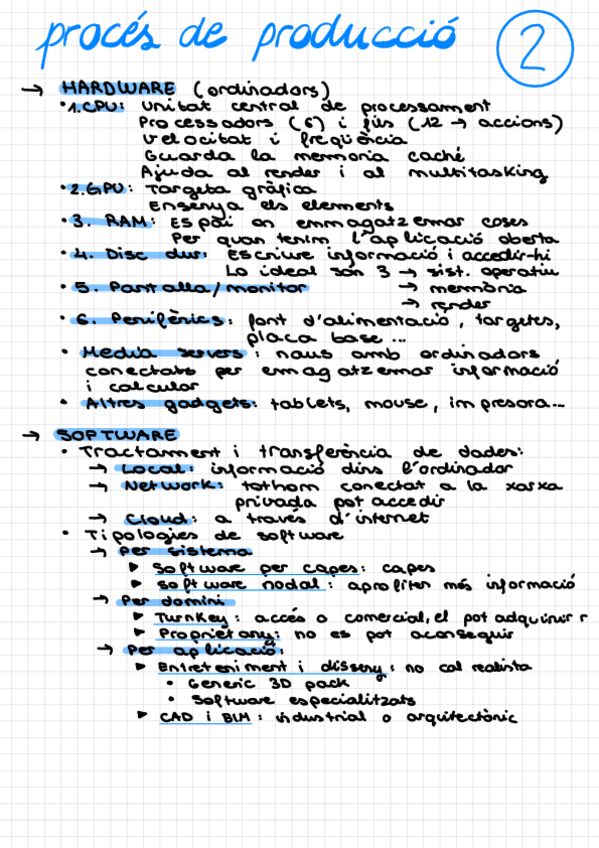 procés de producció 2
→ HARDWARE (ordinadors)
• 1. CPU: Unitat central de processament
Processadors (6) i fils (12 → accions)
Velocitat i freqüència
Guarda la memoria caché
Ajuda al render i al multitasking
• 2. GPU: Targeta gràfica
Ensenya els elements
• 3. RAM: Espai on emmagatzemar coses
Per quan tenim l'aplicació oberta
• 4. Disc dur: Escriure informació i accedir-hi
Lo ideal són 3 → sist. operatiu
• 5. Pantalla/monitor → memòria
→ render
• 6. Perifèrics: font d'alimentació, targetes,
placa base...
• Media servers: naus amb ordinadors
conectats per emagatzemar informació
i calcular
• Altres gadgets: tablets, mouse, impresora...
→ SOFTWARE
• Tractament i transferència de dades:
→ Local: informació dins l'ordinador
→ Network: tothom conectat a la xarxa
privada pot accedir
→ Cloud: a través d'internet
• Tipologies de software
→ Per sistema
▶ Software per capes: capes
▶ Software nodal: aprofiten més informació
→ Per domini
▶ TurnKey: accés o comercial, el pot adquirir r
▶ Proprietany: no es pot aconseguir
→ Per aplicació:
▶ Entreteniment i disseny: no cal realista
• Generic 3D pack
• Software especialitzats
▶ CAD i BIM: industrial o arquitectònic